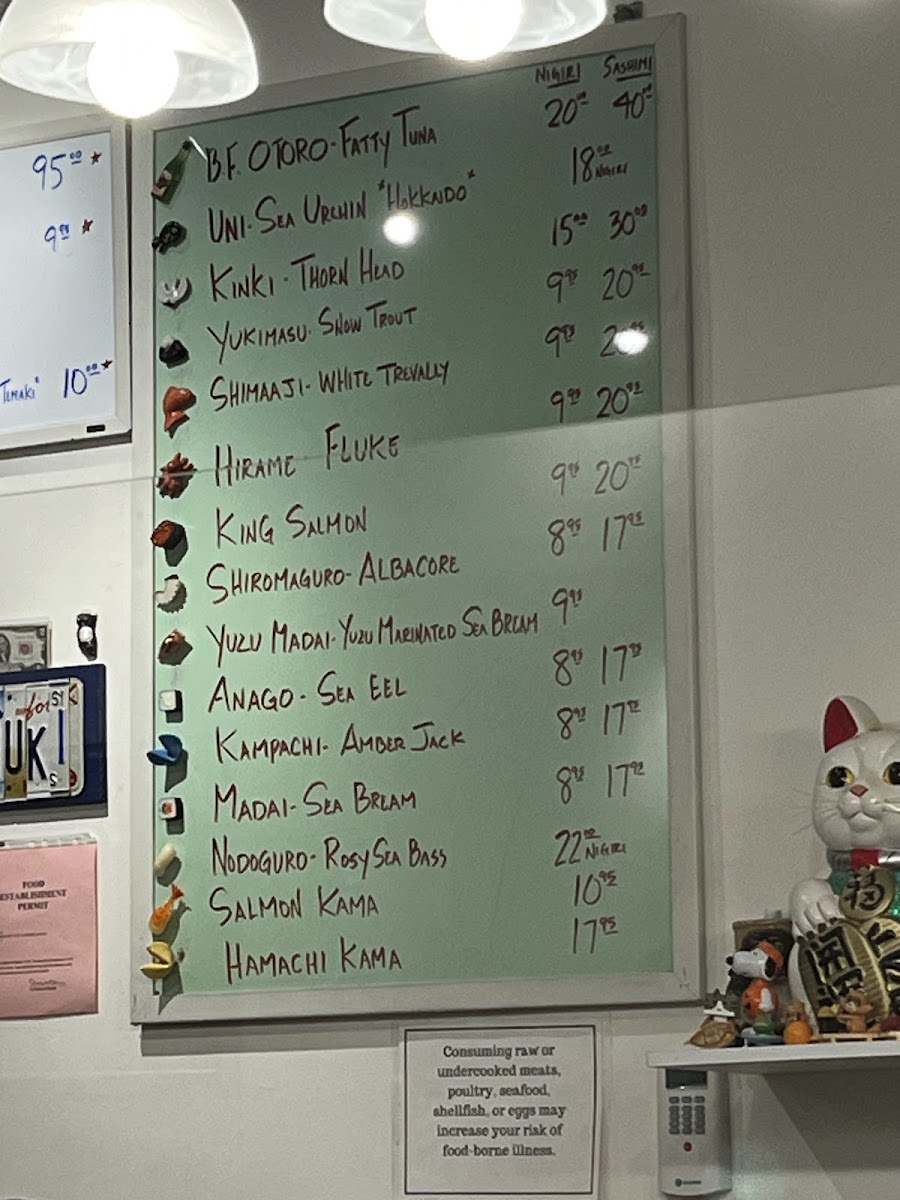 NIGIRI SASHIMI
B.F. OTORO-FATTY TUNA 20⁰⁰ 40⁰⁰
UNI-SEA URCHIN "HOKKAIDO" 18⁰⁰ NIGIRI
KINKI-THORN HEAD 15⁰⁰ 30⁰⁰
YUKIMASU-SNOW TROUT 9⁹⁵ 20⁹⁵
SHIMAAJI-WHITE TREVALLY 9⁹⁵
HIRAME FLUKE 9⁹⁵ 20⁹⁵
KING SALMON 9⁹⁵ 20⁹⁵
SHIROMAGURO-ALBACORE 8⁹⁵ 17⁹⁵
YUZU MADAI-YUZU MARINATED SEA BREAM 9⁹⁵
ANAGO-SEA EEL 8⁹⁵ 17⁹⁵
KAMPACHI-AMBER JACK 8⁹⁵ 17⁹⁵
MADAI-SEA BREAM 8⁹⁵ 17⁹⁵
NODOGURO-ROSY SEA BASS 22⁰⁰ NIGIRI
SALMON KAMA 10⁹⁵
HAMACHI KAMA 17⁹⁵
95⁰⁰*
9⁹⁵*
TEMAKI" 10⁰⁰*
UKI
FOOD
ESTABLISHMENT
PERMIT
福
Consuming raw or
undercooked meats,
poultry, seafood,
shellfish, or eggs may
increase your risk of
food-borne illness.